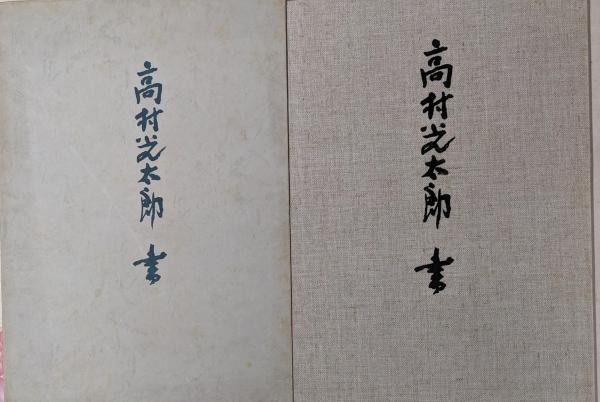 高村光太郎 書
高村光太郎 書